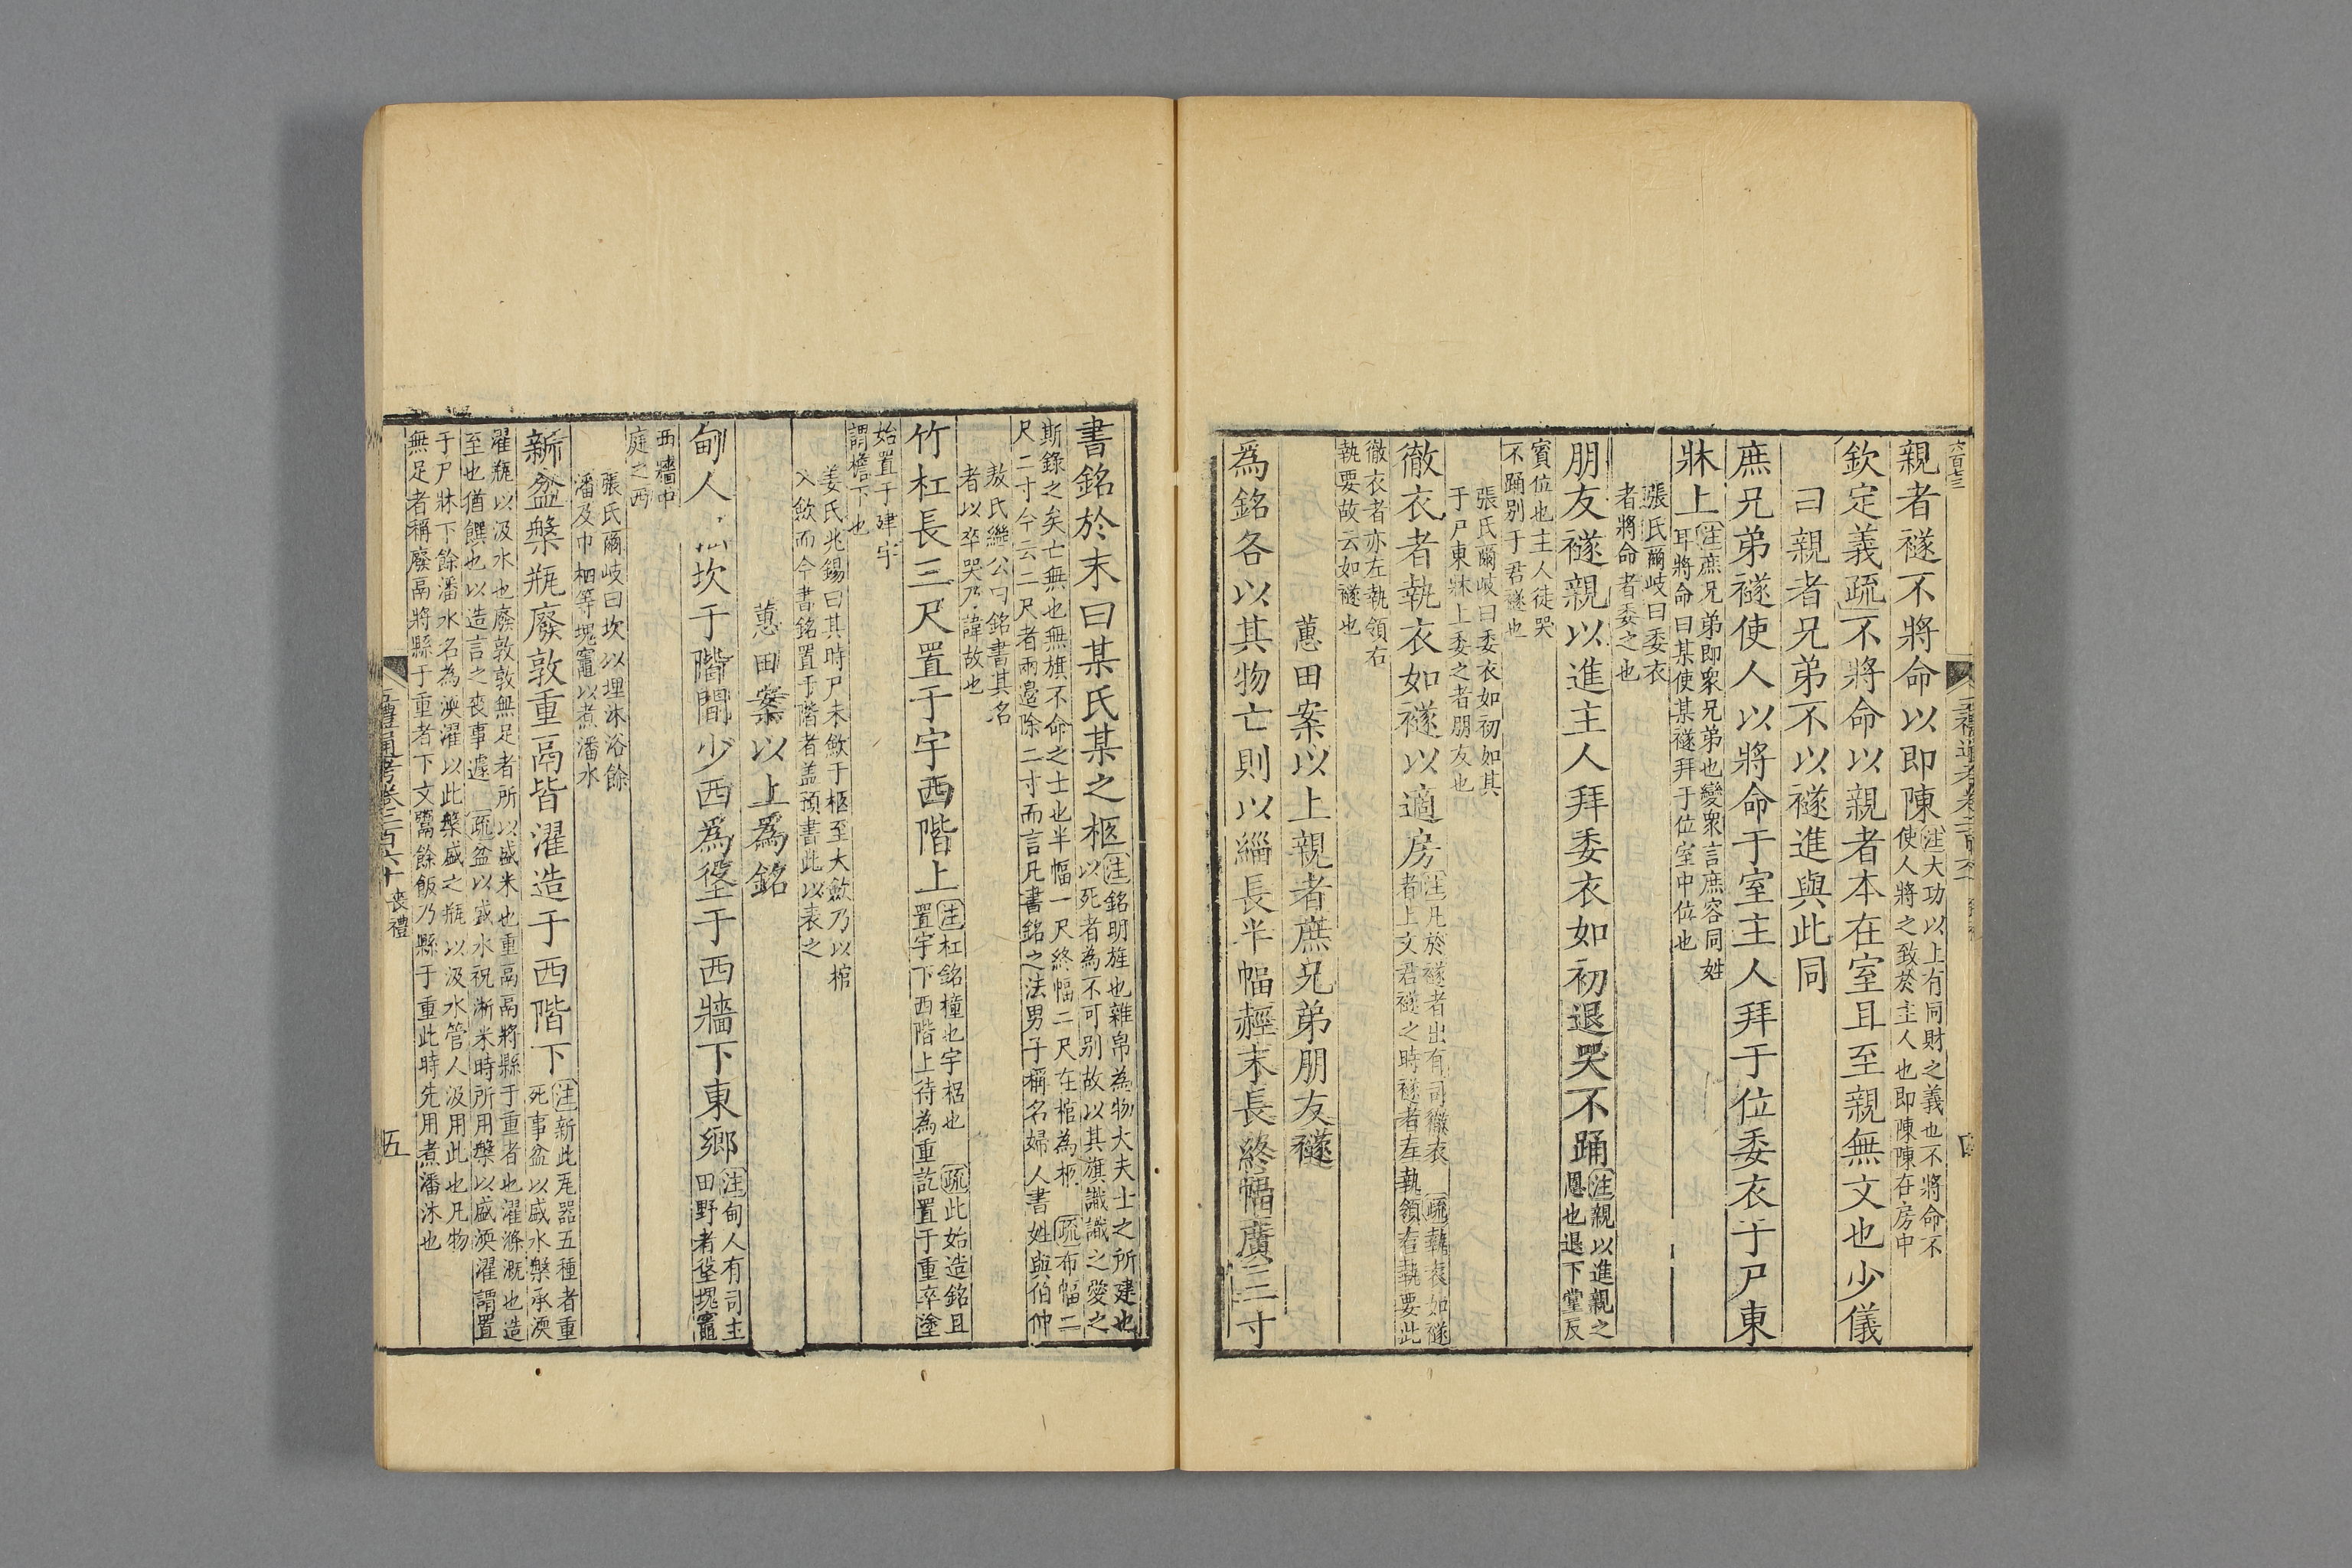 六百七三
親者襚不將命以即陳注大功以上有同財之義也不將命不
使人將之致於主人也即陳陳在房中
欽定義疏不將命以親者本在室且至親無文也少儀
曰親者兄弟不以襚進與此同
庶兄弟襚使人以將命于室主人拜于位委衣于尸東
牀上注庶兄弟即衆兄弟也變衆言庶容同姓
耳將命曰某使某襚拜于位室中位也
張氏爾岐曰委衣
者將命者委之也
朋友襚親以進主人拜委衣如初退哭不踊注親以進親之
恩也退下堂反
賓位也主人徒哭
不踊别于君襚也
張氏爾岐曰委衣如初如其
于尸東牀上委之者朋友也
徹衣者執衣如襚以適房注凡於襚者出有司徹衣 疏執衣如襚
者上文君襚之時襚者左執領右執要此
徹衣者亦左執領右
執要故云如襚也
蕙田案以上親者庶兄弟朋友襚
爲銘各以其物亡則以緇長半幅赬末長終幅廣三寸
書銘於末曰某氏某之柩注銘明旌也雜帛為物大夫士之所建也
以死者為不可别故以其旗識識之愛之
斯錄之矣亡無也無旗不命之士也半幅一尺終幅二尺在棺為柩 疏布幅二
尺二寸今云二尺者兩邊除二寸而言凡書銘之法男子稱名婦人書姓與伯仲
敖氏繼公曰銘書其名
者以卒哭乃諱故也
竹杠長三尺置于宇西階上注杠銘橦也宇梠也 疏此始造銘且
置宇下西階上待為重訖置于重卒塗
始置于肂宇
謂檐下也
姜氏兆錫曰其時尸未斂于柩至大斂乃以棺
入斂而今書銘置于階者蓋預書此以表之
蕙田案以上爲銘
甸人坎于階間少西爲垼于西牆下東鄉注甸人有司主
田野者垼塊竈
西牆中
庭之西
張氏爾岐曰坎以埋沐浴餘
潘及巾柶等塊竈以煮潘水
新盆槃瓶廢敦重鬲皆濯造于西階下注新此瓦器五種者重
死事盆以盛水槃承渜
濯瓶以汲水也廢敦敦無足者所以盛米也重鬲鬲將縣于重者也濯滌溉也造
至也猶饌也以造言之喪事遽 疏盆以盛水祝淅米時所用槃以盛渜濯謂置
于尸牀下餘潘水名為渜濯以此槃盛之瓶以汲水管人汲用此也凡物
無足者稱廢鬲將縣于重者下文鬻餘飯乃縣于重此時先用煮潘沐也
五禮通考卷二百六十 喪禮
五